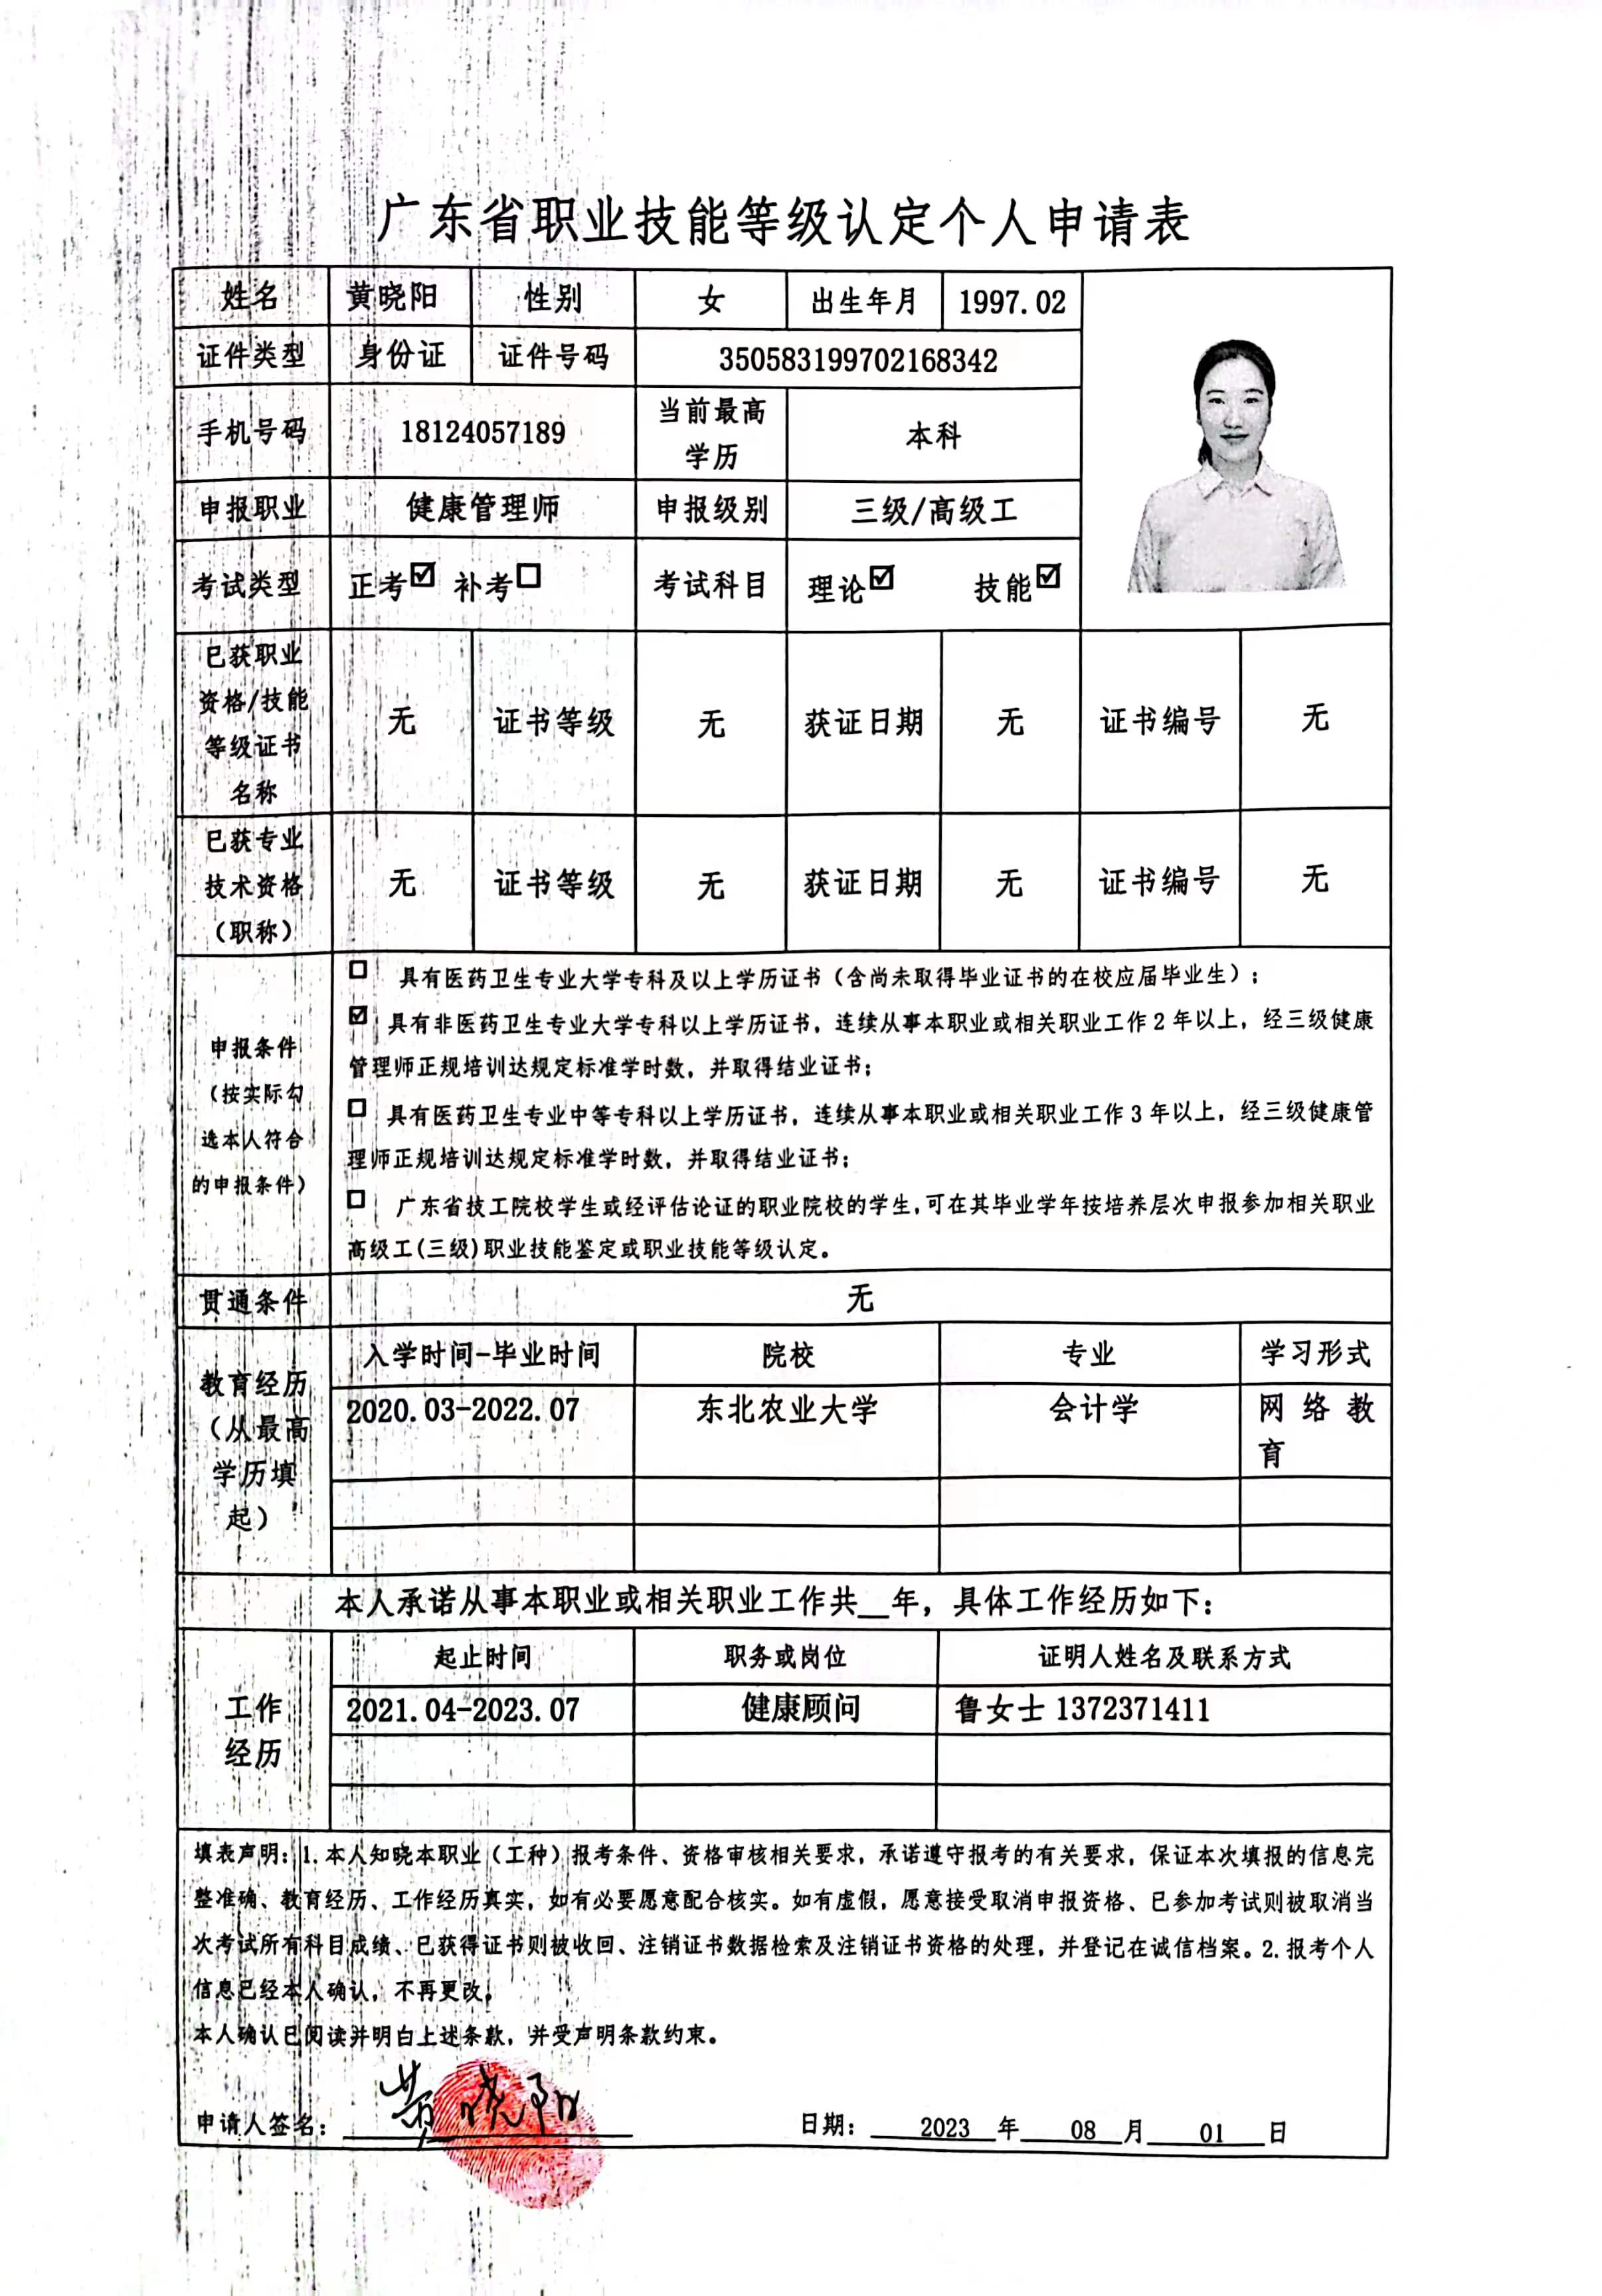 广东省职业技能等级认定个人申请表
姓名 黄晓阳 性别 女 出生年月 1997.02
证件类型 身份证 证件号码 350583199702168342
手机号码 18124057189 当前最高学历 本科
申报职业 健康管理师 申报级别 三级/高级工
考试类型 正考☑ 补考☐ 考试科目 理论☑ 技能☑
已获职业资格/技能等级证书名称 无 证书等级 无 获证日期 无 证书编号 无
已获专业技术资格（职称） 无 证书等级 无 获证日期 无 证书编号 无
申报条件
（按实际勾
选本人符合
的申报条件）
☐ 具有医药卫生专业大学专科及以上学历证书（含尚未取得毕业证书的在校应届毕业生）；
☑ 具有非医药卫生专业大学专科以上学历证书，连续从事本职业或相关职业工作2年以上，经三级健康
管理师正规培训达规定标准学时数，并取得结业证书；
☐ 具有医药卫生专业中等专科以上学历证书，连续从事本职业或相关职业工作3年以上，经三级健康管
理师正规培训达规定标准学时数，并取得结业证书；
☐ 广东省技工院校学生或经评估论证的职业院校的学生,可在其毕业学年按培养层次申报参加相关职业
高级工(三级)职业技能鉴定或职业技能等级认定。
贯通条件 无
教育经历
（从最高
学历填
起）
入学时间-毕业时间 院校 专业 学习形式
2020.03-2022.07 东北农业大学 会计学 网络教育
本人承诺从事本职业或相关职业工作共__年，具体工作经历如下：
工作
经历
起止时间 职务或岗位 证明人姓名及联系方式
2021.04-2023.07 健康顾问 鲁女士 1372371411
填表声明：1.本人知晓本职业（工种）报考条件、资格审核相关要求，承诺遵守报考的有关要求，保证本次填报的信息完
整准确、教育经历、工作经历真实，如有必要愿意配合核实。如有虚假，愿意接受取消申报资格、已参加考试则被取消当
次考试所有科目成绩、已获得证书则被收回、注销证书数据检索及注销证书资格的处理，并登记在诚信档案。2.报考个人
信息已经本人确认，不再更改。
本人确认已阅读并明白上述条款，并受声明条款约束。
申请人签名：黄晓阳 日期：2023年08月01日